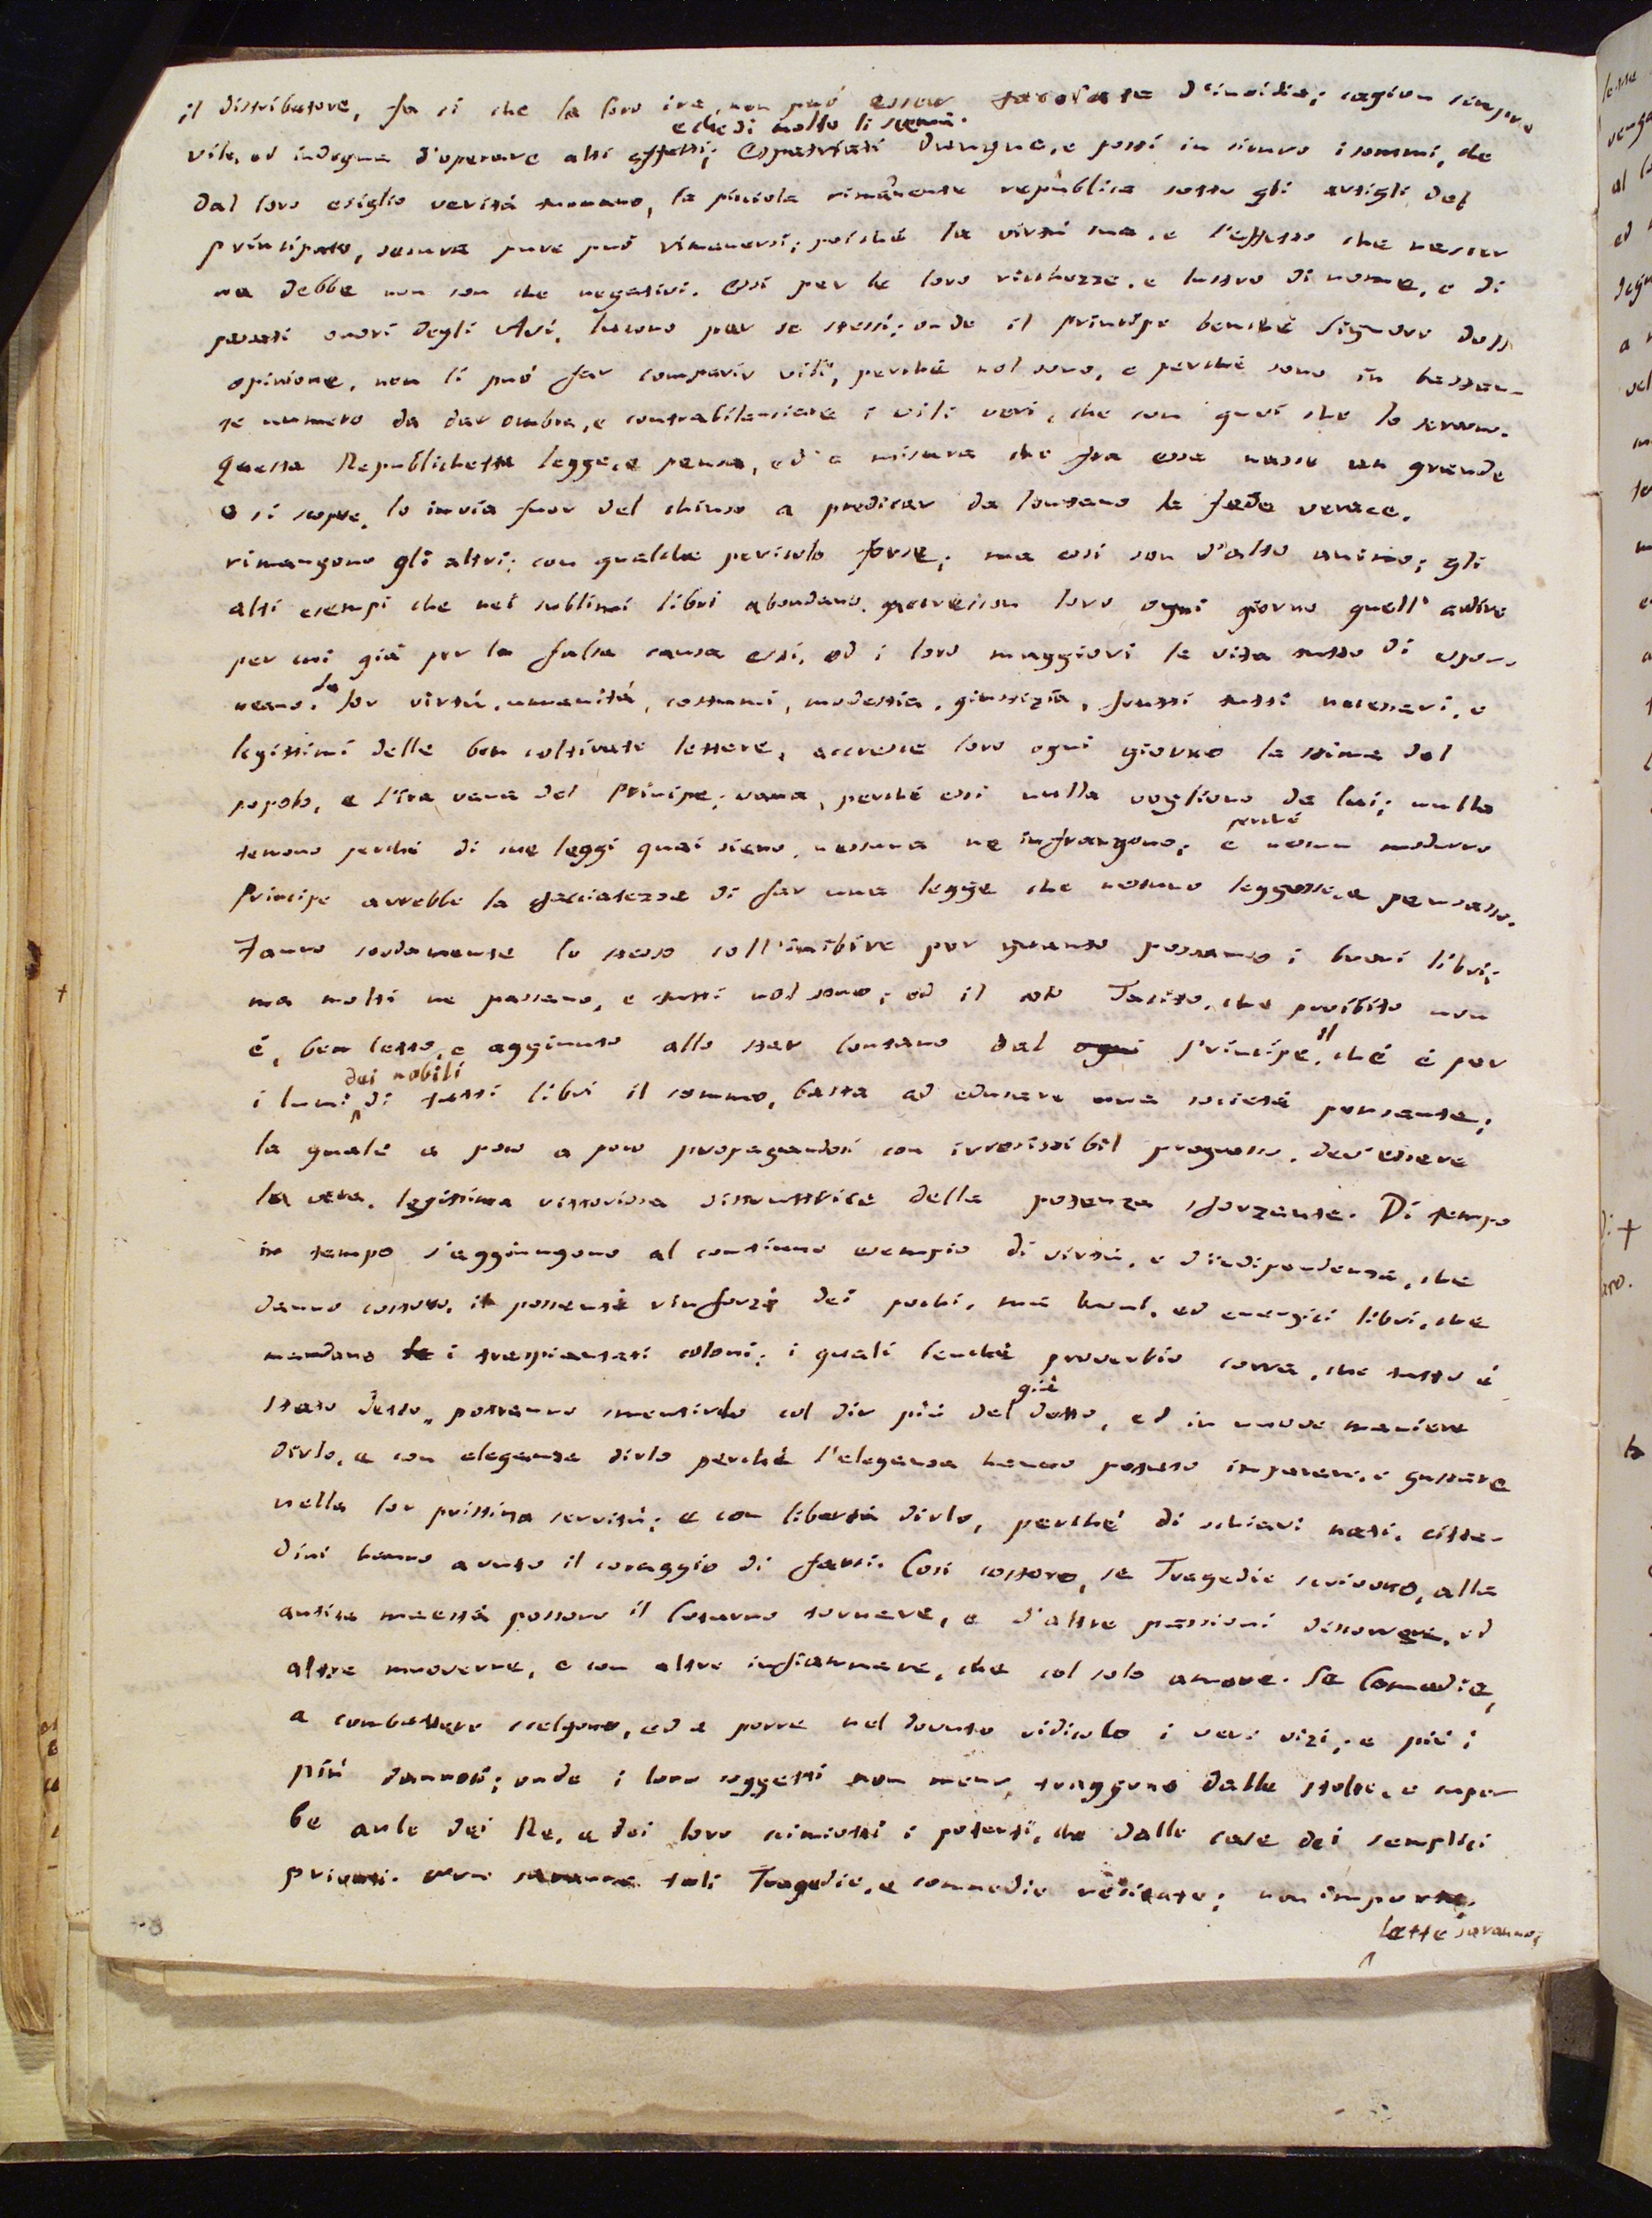 il distributore, fa si che la loro ira, non può esser d'invidia; cagion sempre
e che di molto li scema.
vile, ed indegna d'operare alti effetti; Espatriati dunque, e posti in sicuro i sommi, che
dal loro esiglio verità tuonano, la piccola rimanente republica sotto gli artigli del
principato, secura pure può rimanersi; poiché la virtù sua, e l'effetto che nascer
ne debbe non son che negativi. Essi per le loro ricchezze, e lustro di nome, e di
passati onori degli Avi, lucono per se stessi; onde il principe benché Signore dell'
opinione, non li può far comparir vili, perché nol sono, e perché sono in bastan-
te numero da dar ombra, e contrabilanciare i vili veri, che son quei che lo servono.
Questa Republichetta legge, e pensa, ed a misura che fra essa nasce un grande
o si scopre, lo invia fuor del chiuso a predicar da lontano la fede verace.
rimangono gli altri; con qualche pericolo forse; ma essi son d'alto animo; gli
alti esempi che nei sublimi libri abondano, accrescon loro ogni giorno quell' ardire
per cui già per la falsa causa essi, ed i loro maggiori la vita tutto dì espon-
neano. la lor virtù, umanità, costumi, modestia, giustizia, frutti tutti necessari, e
legittimi delle ben coltivate lettere, accresce loro ogni giorno la stima del
popolo, e l'ira vana del Principe; vana, perché essi nulla vogliono da lui; nulla
temono perché di sue leggi quai sieno, nessuna ne infrangono; e perché nessun moderno
Principe avrebbe la sfacciatezza di far una legge che nessuno leggesse, e pensasse.
Fanno sordamente lo stesso coll'inibire per quanto possano i buoni libri;
ma molti ne passano, e tutti nol sono; ed il solo Tacito, che proibito non
è, ben letto, e aggiunto allo star lontano dal ogni Principe, il che è per
i lumi dei nobili di tutti libri il sommo, basta ad educare una società pensante;
la quale a poco a poco propagandosi con irresistibil progresso, dev'essere
la vera, legittima vittoriosa distruttrice della potenza sforzante. Di tempo
in tempo s'aggiungono al continuo esempio di virtù, e d'indipendenza, che
danno costoro, i possenti rinforzi dei pochi, ma buoni, ed energici libri, che
mandano le i traspiantati coloni; i quali benché proverbio corra, che tutto è
stato detto, potranno smentirlo col dir più del già detto, ed in nuove maniere
dirlo, e con eleganza dirlo perché l'eleganza hanno potuto imparare, e gustare
nella lor pristina servitù; e con libertà dirlo, perché di schiavi nati, citta-
dini hanno avuto il coraggio di farsi. Così costoro, se Tragedie scrivono, alla
antica maestà possono il Coturno tornare, e d'altre passioni discorrere, ed
altre muoverne, e con altre infiammare, che col solo amore. Se Comedie,
a combattere scelgono, ed a porre nel dovuto ridicolo i veri vizi, e più i
più dannosi; onde i loro soggetti non meno, traggono dalle stolte, e super-
be aule dei Re, e dei loro scimiotti i potenti, che dalle case dei semplici
privati. saranno tali Tragedie, e commedie recitate; non importa;
lette saranno,